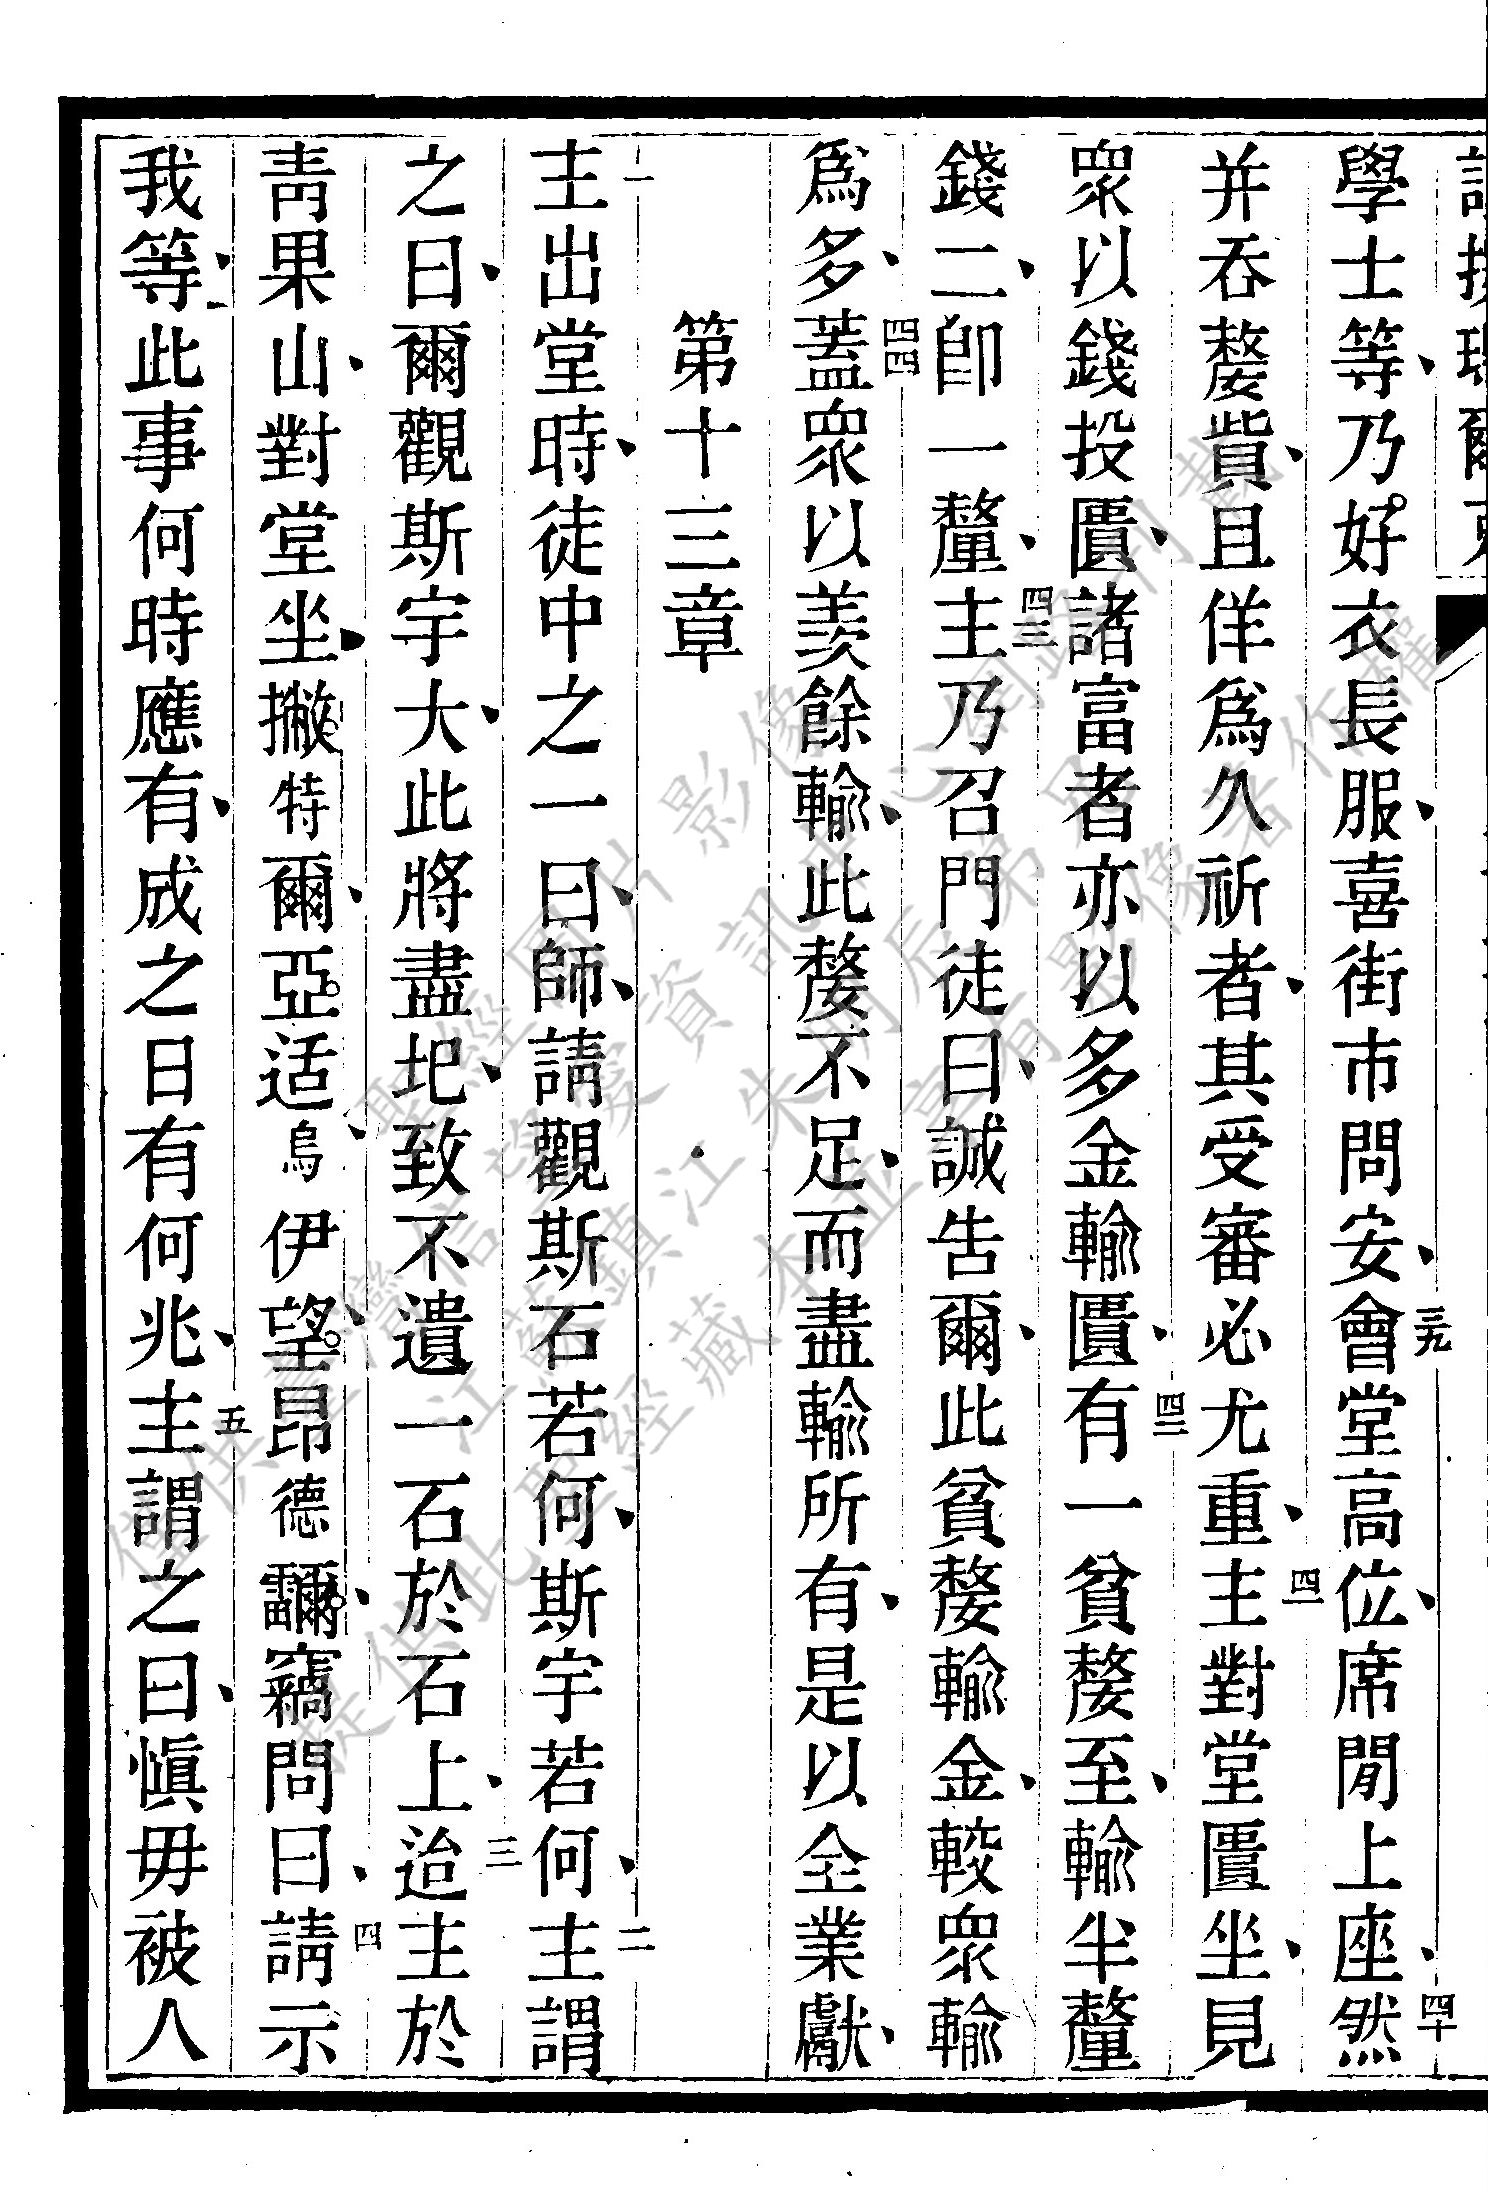 學士等、乃好衣長服、喜街市問安、三九會堂高位、席閒上座、四十然
并吞嫠貲、且佯爲久祈者、其受審必尤重、四一主對堂匱坐、見
眾以錢投匱、諸富者亦以多金輸匱、四二有一貧嫠至、輸半釐
錢二、卽一釐、四三主乃召門徒曰、誠告爾、此貧嫠輸金、較眾輸
爲多、四四蓋眾以羨餘輸、此嫠不足、而盡輸所有、是以全業獻、
第十三章
一主出堂時、徒中之一曰、師、請觀斯石若何、斯宇若何、二主謂
之曰、爾觀斯宇大、此將盡圮、致不遺一石於石上、三迨主於
靑果山、對堂坐、撇特爾、亞适烏、伊望、昂德、竊問曰、四請示
我等、此事何時應有、成之日有何兆、五主謂之曰、愼毋被人